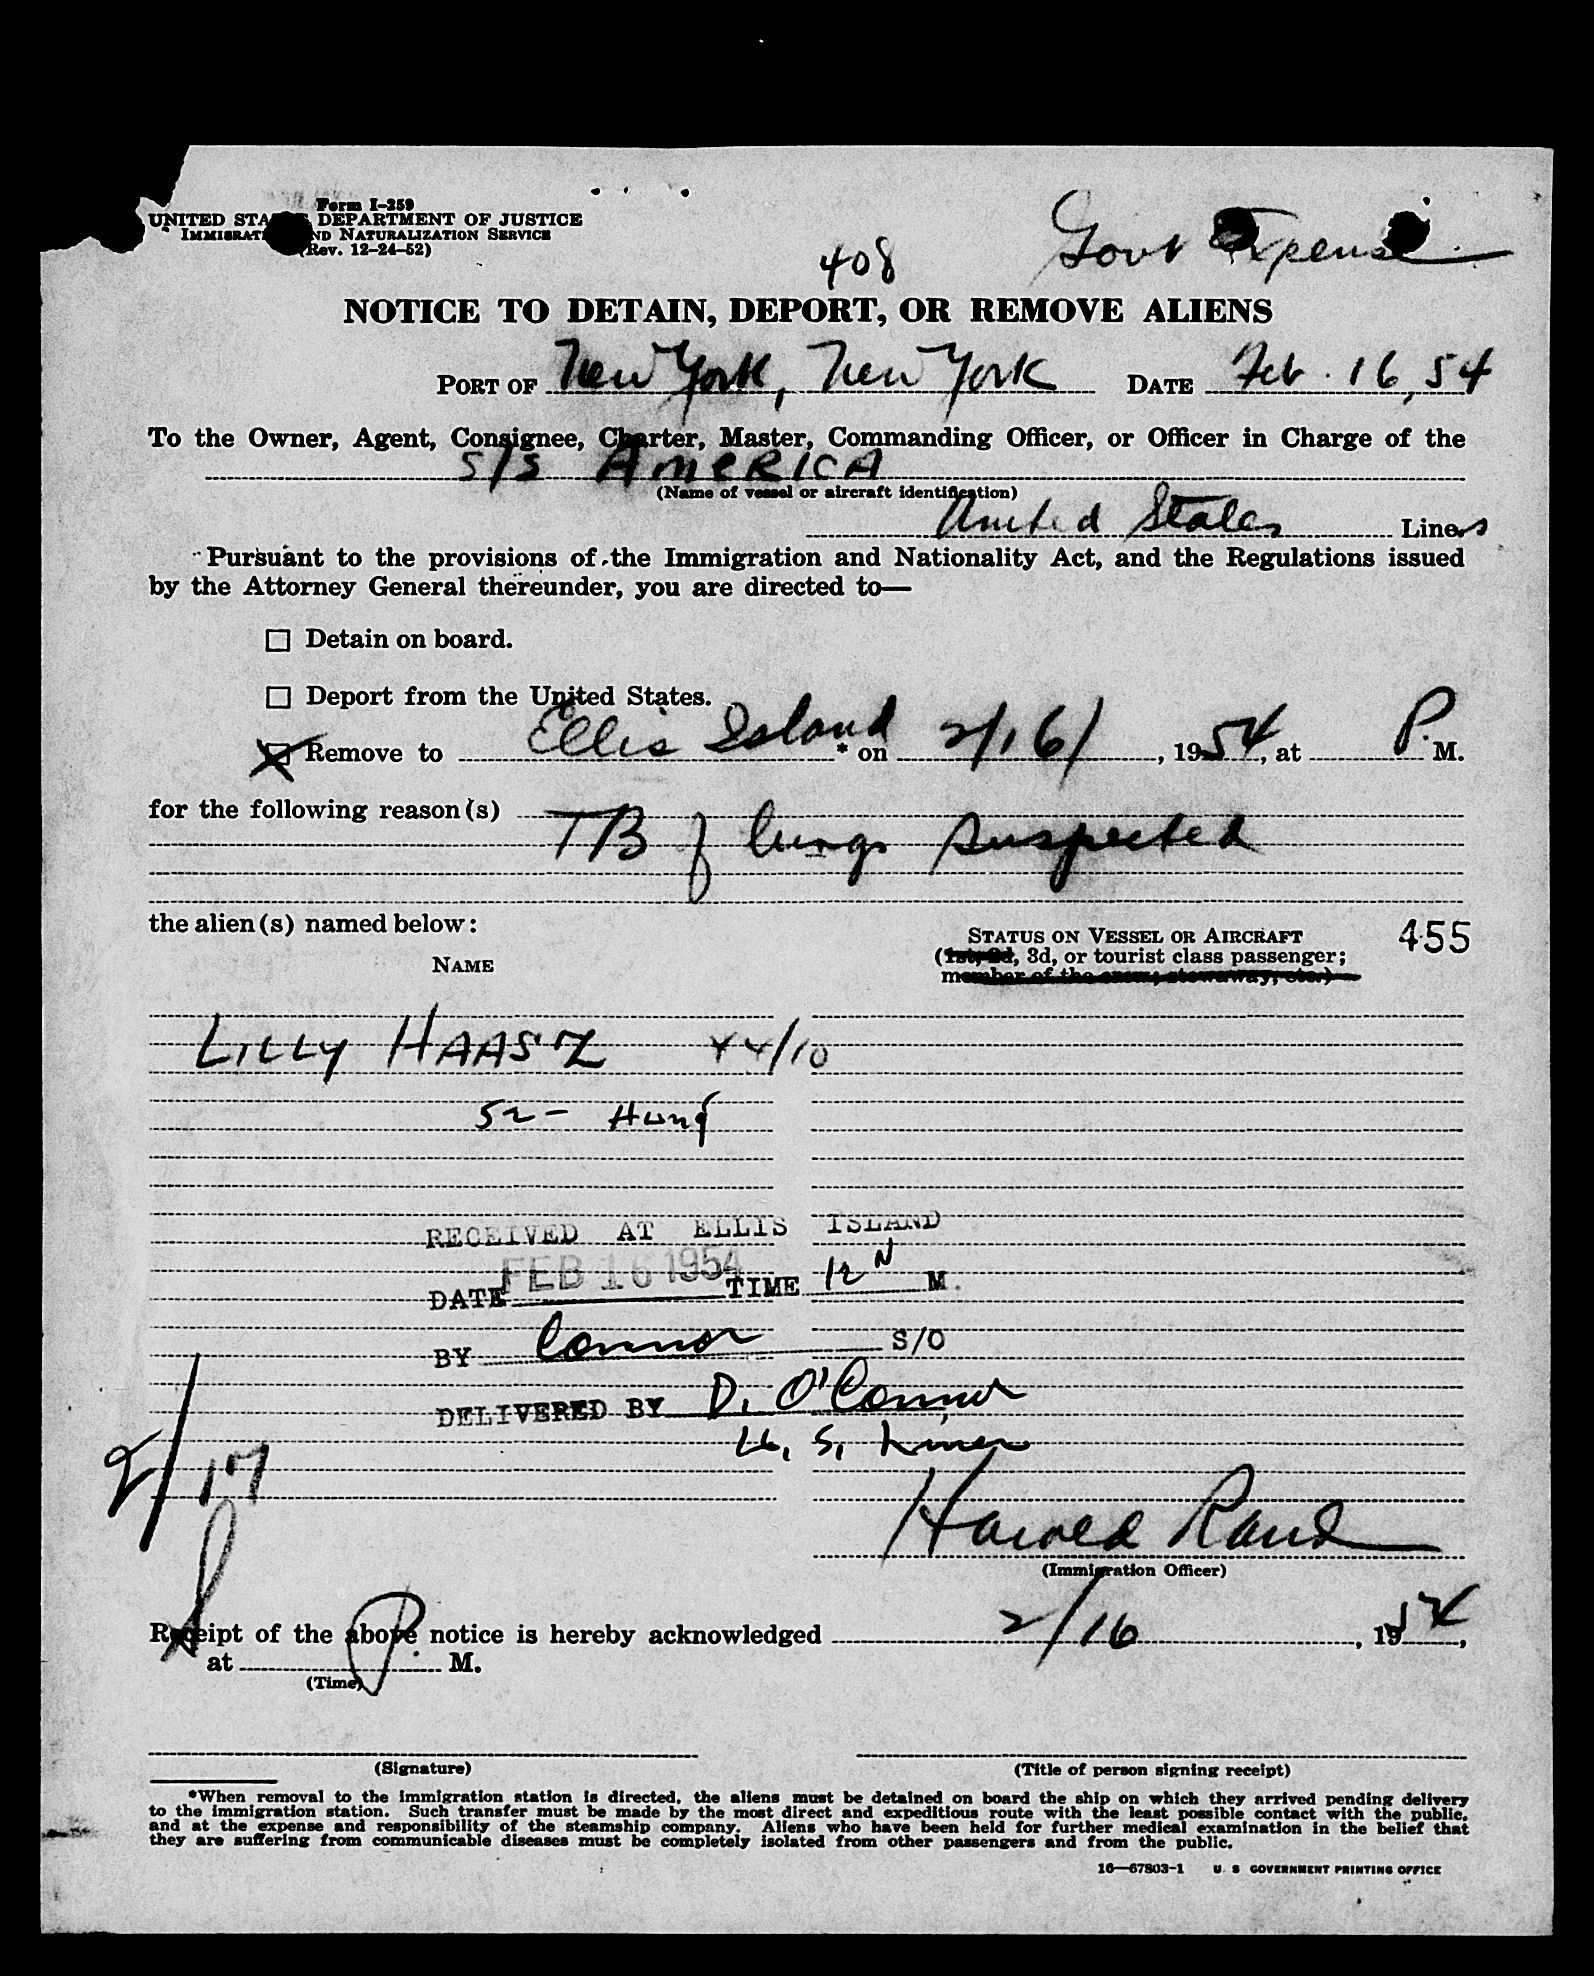 Form I-259
UNITED STATES DEPARTMENT OF JUSTICE
IMMIGRATION AND NATURALIZATION SERVICE
(Rev. 12-24-52)
Govt Expense
408
NOTICE TO DETAIN, DEPORT, OR REMOVE ALIENS
PORT OF New York, New York DATE Feb. 16, 54
To the Owner, Agent, Consignee, Charter, Master, Commanding Officer, or Officer in Charge of the
S/S AMERICA
(Name of vessel or aircraft identification)
United States Lines
Pursuant to the provisions of the Immigration and Nationality Act, and the Regulations issued
by the Attorney General thereunder, you are directed to—
Detain on board.
Deport from the United States.
Remove to Ellis Island * on 2/16/, 1954, at P. M.
for the following reason(s)
TB of lungs suspected
the alien(s) named below:
455
STATUS ON VESSEL OR AIRCRAFT
NAME
(1st, 2d, 3d, or tourist class passenger;
member of the crew; stowaway, etc.)
LILLY HAASZ 44/10
52 - Hung
RECEIVED AT ELLIS ISLAND
DATE FEB 16 1954 TIME 12 N M.
BY Connor S/O
DELIVERED BY D. O'Connor
U. S. Lines
2/17
Harold Rand
(Immigration Officer)
Receipt of the above notice is hereby acknowledged 2/16, 1954,
at P. M.
(Time)
(Signature) (Title of person signing receipt)
*When removal to the immigration station is directed, the aliens must be detained on board the ship on which they arrived pending delivery
to the immigration station. Such transfer must be made by the most direct and expeditious route with the least possible contact with the public,
and at the expense and responsibility of the steamship company. Aliens who have been held for further medical examination in the belief that
they are suffering from communicable diseases must be completely isolated from other passengers and from the public.
16—67803-1 U. S. GOVERNMENT PRINTING OFFICE